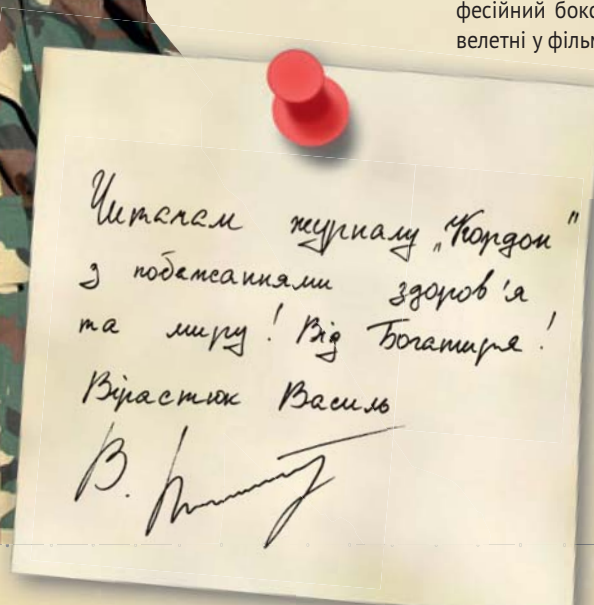 фесійний бокс
велетні у філь
Читачам журналу „Кордон"
з побажаннями здоров'я
та миру! Від Богатиря!
Вірастюк Василь
В.